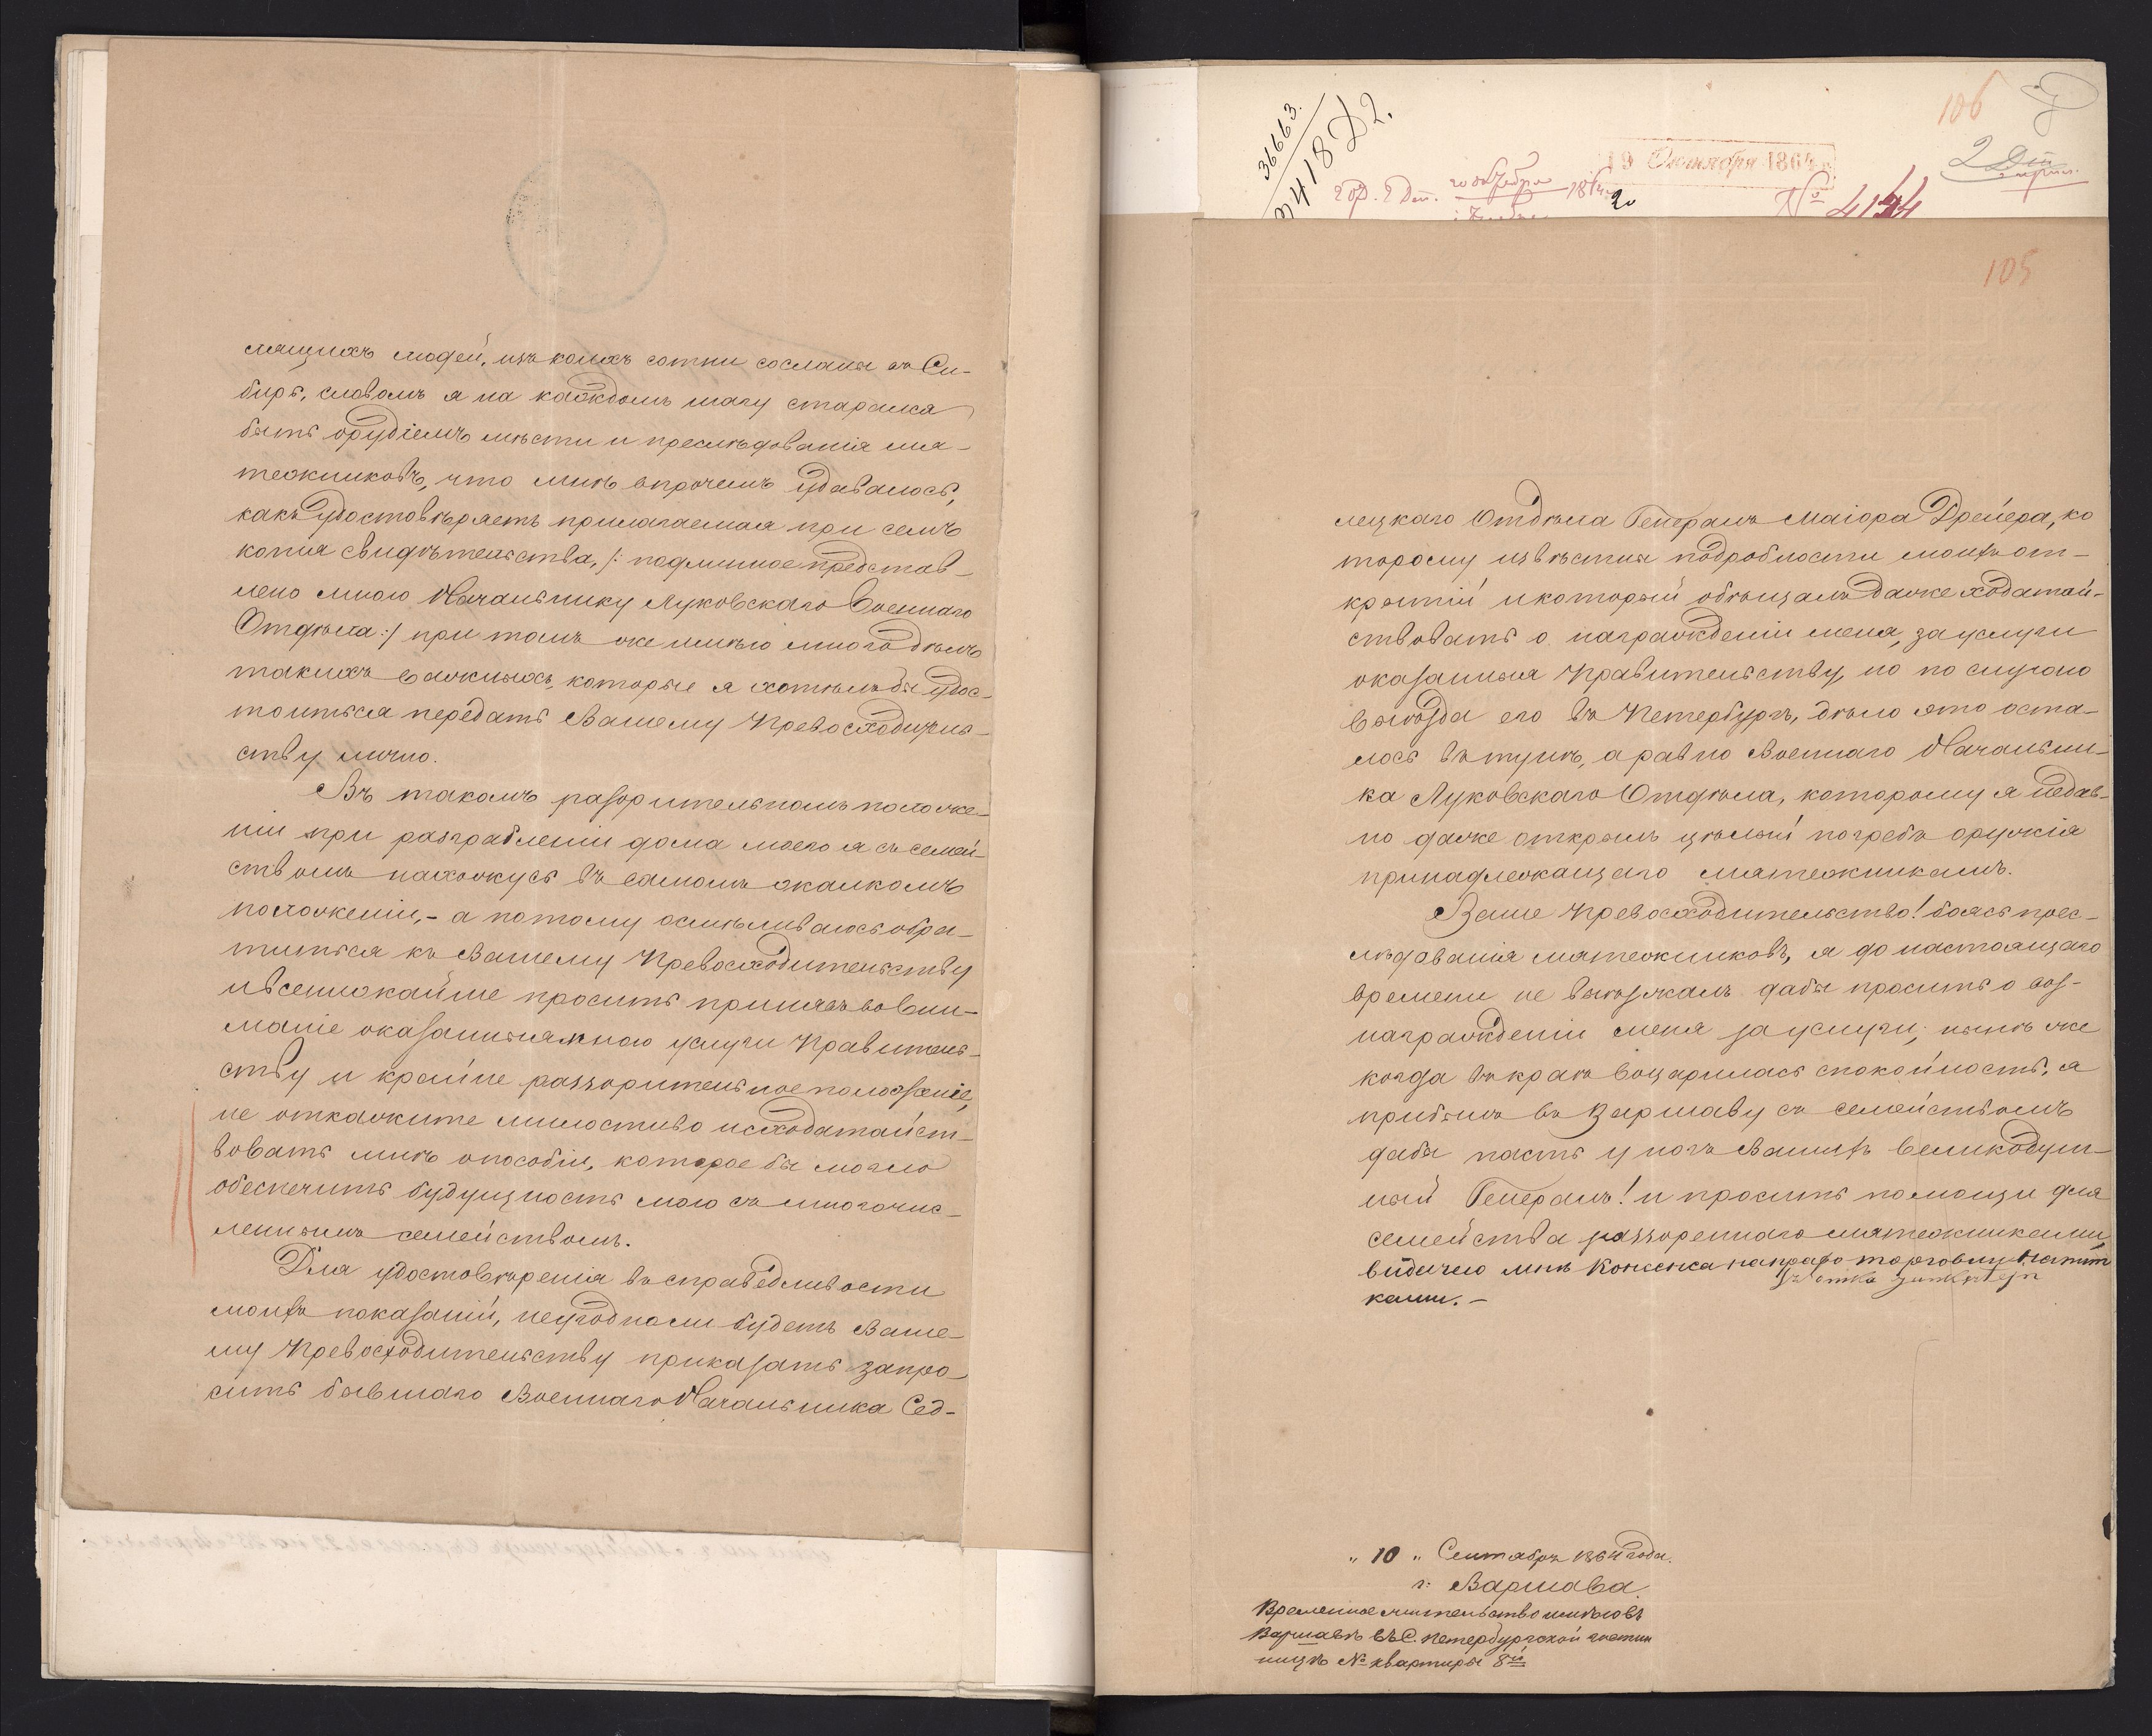 слящихъ людей, изъ коихъ сотни сосланы въ Си-
бирь, словомъ я на каждомъ шагу старался
быть орудіемъ мѣсти и преслѣдованія мя-
тежниковъ, что мнѣ впрочемъ удавалось,
какъ удостовѣряетъ прилагаемая при семъ
копія свидѣтельства, /: подлинное представ-
лено мною Начальнику Луковскаго Военнаго
Отдѣла :/ при томъ же имѣю много дѣлъ
такихъ важныхъ, которые я хотѣлъ бы удос-
тоиться передать Вашему Превосходитель-
ству лично.
Въ такомъ разорительномъ положе-
ніи при разграбленіи дома моего я съ семей-
ствомъ нахожусь въ самомъ жалкомъ
положеніи, - а потому осмѣливаюсь обра-
титься къ Вашему Превосходительству
и всенижайше просить принявъ во вни-
маніе оказанныя мною услуги Правитель-
ству и крайне раззорительное положеніе,
не откажите милостиво исходатайст-
вовать мнѣ опособіи, которое бы могло
обеспечить будущность мою съ многочис-
леннымъ семействомъ.
Для удостовѣренія въ справедливости
моихъ показаній, неугодно ли будетъ Ваше-
му Превосходительству приказать запро-
сить бывшаго Военнаго Начальника Сед-
36663.
418 Д 2.
19 Октября 1864 г.
№ 4154
106
2
105
лецкаго Отдѣла Генералъ Маіора Дрейера, ко
торому извѣстны подробности моихъ от-
крытій и который обѣщалъ даже ходатай-
ствовать о награжденіи меня, за услуги
оказанныя Правительству, но по случаю
выѣзда его въ Петербургъ, дѣло это оста-
лось втунѣ, а равно Военнаго Начальни-
ка Луковскаго Отдѣла, которому я недав-
но даже открылъ цѣлый погребъ оружія
принадлежащаго мятежникамъ.
Ваше Превосходительство! боясь прес-
лѣдованія мятежниковъ, я до настоящаго
времени не выѣзжалъ дабы просить о воз-
награжденіи меня за услуги; нынѣ же
когда въ краѣ воцарилась спокойность, я
прибылъ въ Варшаву съ семействомъ
дабы пасть у ногъ Вашихъ Великодуш-
ный Генералъ! и просить помощи для
семейства раззореннаго мятежниками,
мнѣ на право торговли
ками. -
„ 10 „ Сентября 1864 года.
г: Варшава.
Временное жительство имѣю въ
Варшавѣ въ С. Петербургской гостин
ницѣ № квартиры 8й